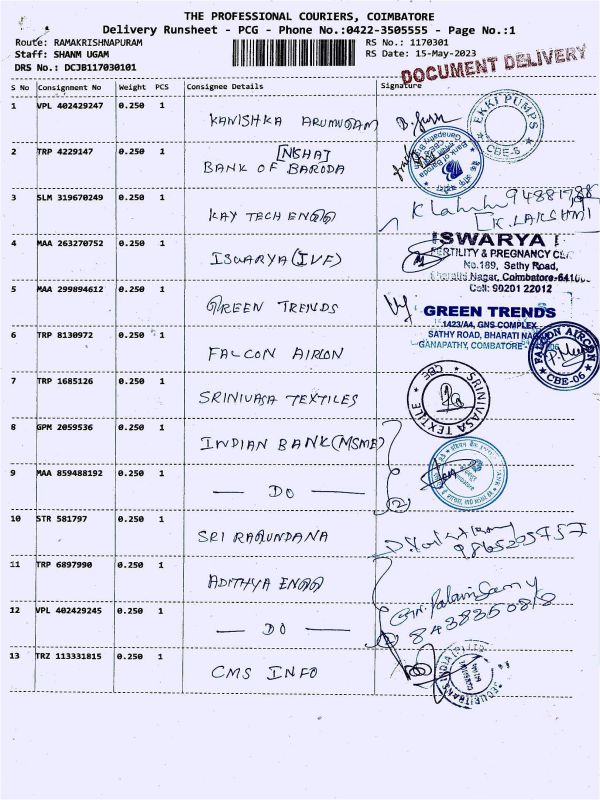 THE PROFESSIONAL COURIERS, COIMBATORE
Delivery Runsheet - PCG - Phone No.:0422-3505555 - Page No.:1
Route: RAMAKRISHNAPURAM
RS No.: 1170301
Staff: SHANM UGAM
RS Date: 15-May-2023
DRS No.: DCJB117030101
DOCUMENT DELIVERY
S No Consignment No Weight PCS Consignee Details Signature
1 VPL 402429247 0.250 1 KANISHKA ARUMUGAM
EKKI PUMPS
CBE-6
2 TRP 4229147 0.250 1 [NSHA] BANK OF BARODA
Bank of Baroda
3 SLM 319670249 0.250 1 KAY TECH ENGG
[K. LAKSHMI
4 MAA 263270752 0.250 1 ISWARYA (IVF)
ISWARYA I
FERTILITY & PREGNANCY
No.169, Sethy Road,
Bharathi Nagar, Coimbatore-6410
Cell: 90201 22012
5 MAA 299894612 0.250 1 GREEN TRENDS
GREEN TRENDS
1423/A4, GNS COMPLEX
SATHY ROAD, BHARATI NAGAR
GANAPATHY, COIMBATORE
6 TRP 8130972 0.250 1 FALCON AIRCON
FALCON AIRCON
CBE-06
7 TRP 1685126 0.250 1 SRINIVASA TEXTILES
SRINIVASA TEXTILE
CBE
8 GPM 2059536 0.250 1 INDIAN BANK (MSME)
9 MAA 859488192 0.250 1 — DO —
2
10 STR 581797 0.250 1 SRI RAGUNDANA
9865225757
11 TRP 6897990 0.250 1 ADITHYA ENGG
12 VPL 402429245 0.250 1 — DO —
13 TRZ 113331815 0.250 1 CMS INFO